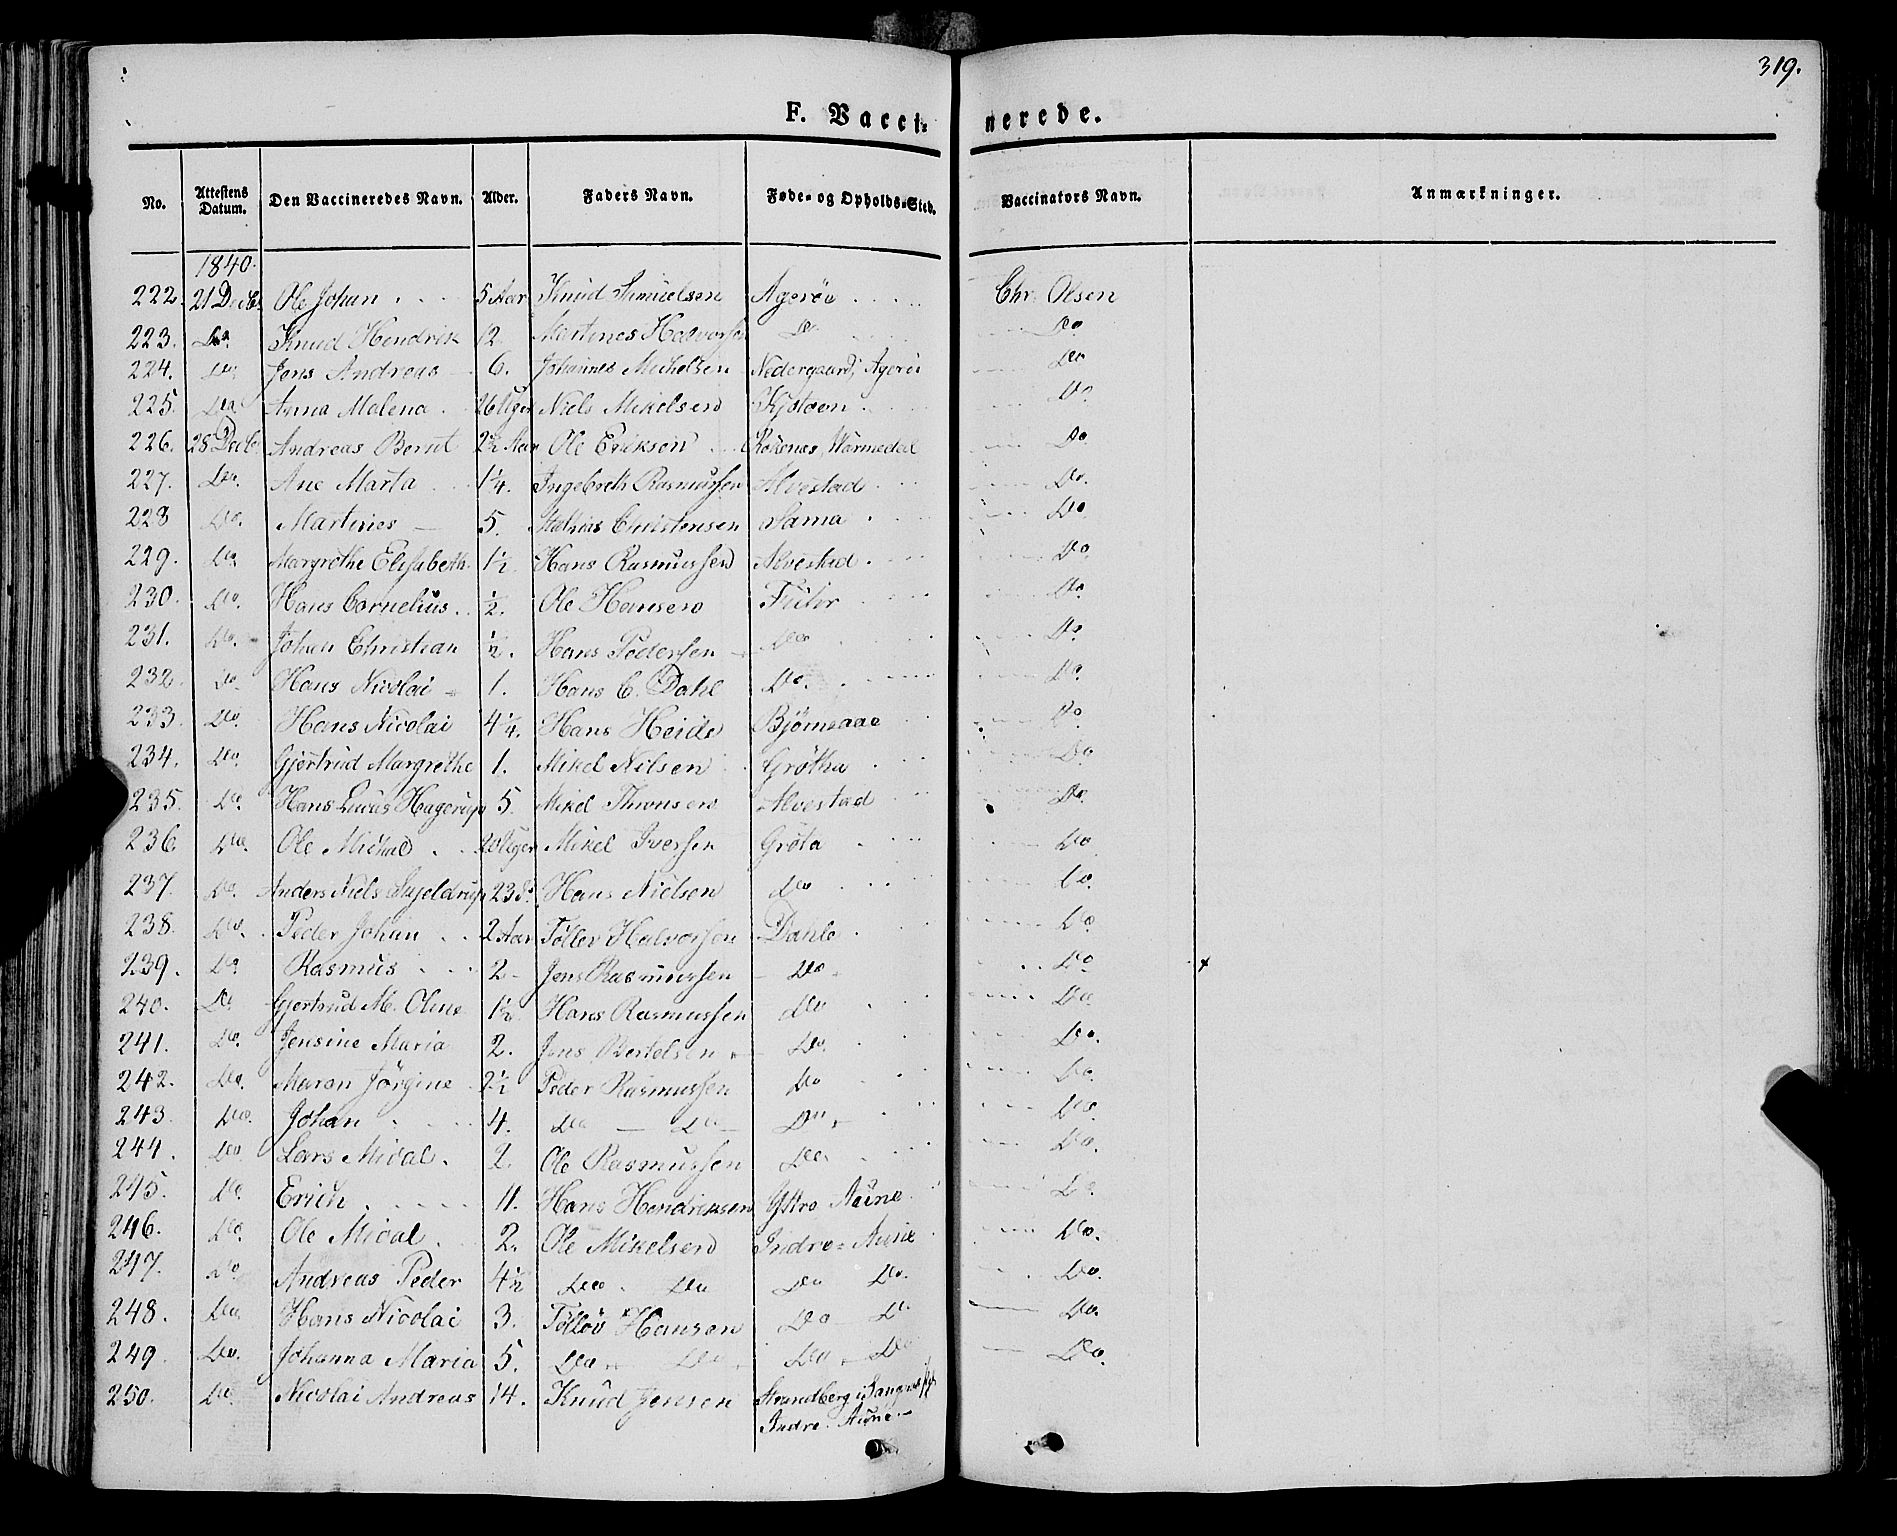 319.
F. Vacci- nerede.
No. Attestens Datum. Den Vaccineredes Navn. Alder. Faders Navn. Føde- og Opholds-Sted. Vaccinators Navn. Anmærkninger.
1840.
222. 21 Decbr. Ole Johan 5 Aar Knud Samuelsen Agerøe Chr. Olsen
223. Do. Knud Hendrik 12. Martines Halvorsen Do. Do.
224. Do. Jens Andreas 6. Johannes Michelsen Nedergaard, Agerøe Do
225. Do. Anna Malena 26 Uger Niels Mikelsen Do.
226. 28 Decb. Andreas Bernt 2½ Aar Ole Eriksen Do
227. Do. Ane Marta 1¼. Ingebreth Rasmussen Alvestad Do.
228 Do. Martines 5. Christensen Sama Do
229. Do. Margrethe Elisabeth 1½. Hans Rasmussen Alvestad Do.
230. Do. Hans Cornelius ½. Ole Hansen Do
231. Do. Johan Christian ½. Hans Pedersen Do Do
232. Do. Hans Nicolai 1. Hans C. Dahl Do. Do.
233. Do. Hans Nicolai 4¼. Hans Heide Bjørnraae Do
234. Do. Gjertrud Margrethe 1. Mikel Nilsen Grøtha Do
235. Do. Hans Lucas Hagerup 5. Mikel Alvestad Do
236. Do. Ole Michal 20 Uger Mikel Iversen Grøta Do
237. Do. Anders Niels Skjeldrup 23 Do. Hans Nielsen Do Do.
238. Do. Peder Johan 2 Aar Tøller Halvorsen Dahle Do
239. Do. Rasmus 2 Jens Rasmussen Do Do
240. Do Gjertrud M. Oline 1½. Hans Rasmussen Do Do.
241. Do. Jensine Maria 2. Jens Bertelsen Do. Do.
242. Do. Maren Jørgine 2½ Peder Rasmussen Do Do.
243. Do. Johan 4. Do Do Do Do
244. Do Lars Mical. 2. Ole Rasmussen Do. Do.
245. Do Erich 11. Hans Hendriksen Yttre Aune Do.
246. Do. Ole Mical 2. Ole Mikelsen Indre Aune Do.
247. Do Andreas Peder 4½ Do. Do Do Do. Do.
248. Do. Hans Nicolai 3. Tølløv Hansen Do Do. Do.
249. Do. Johanna Maria 5. Do Do Do Do Do.
250. Do. Nicolai Andreas 14. Knud Jensen Strandberg i
Indre Aune.